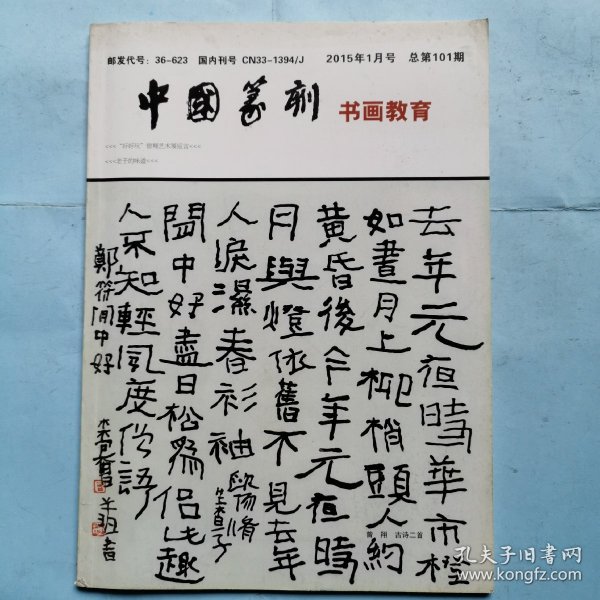 邮发代号：36-623 国内刊号 CN33-1394/J 2015年1月号 总第101期
中國篆刻 书画教育
<<<老子的味道<<<
去年元夜時華市燈
如晝月上柳梢頭人約
黃昏後今年元夜時
月與燈依舊不見去年
人淚濕春衫袖 歐陽脩 生查子
閑中好盡日松爲侶此趣
人不知輕風度僧語
鄭符閑中好
曾翔 古诗二首
孔夫子旧书网
kongfz.com